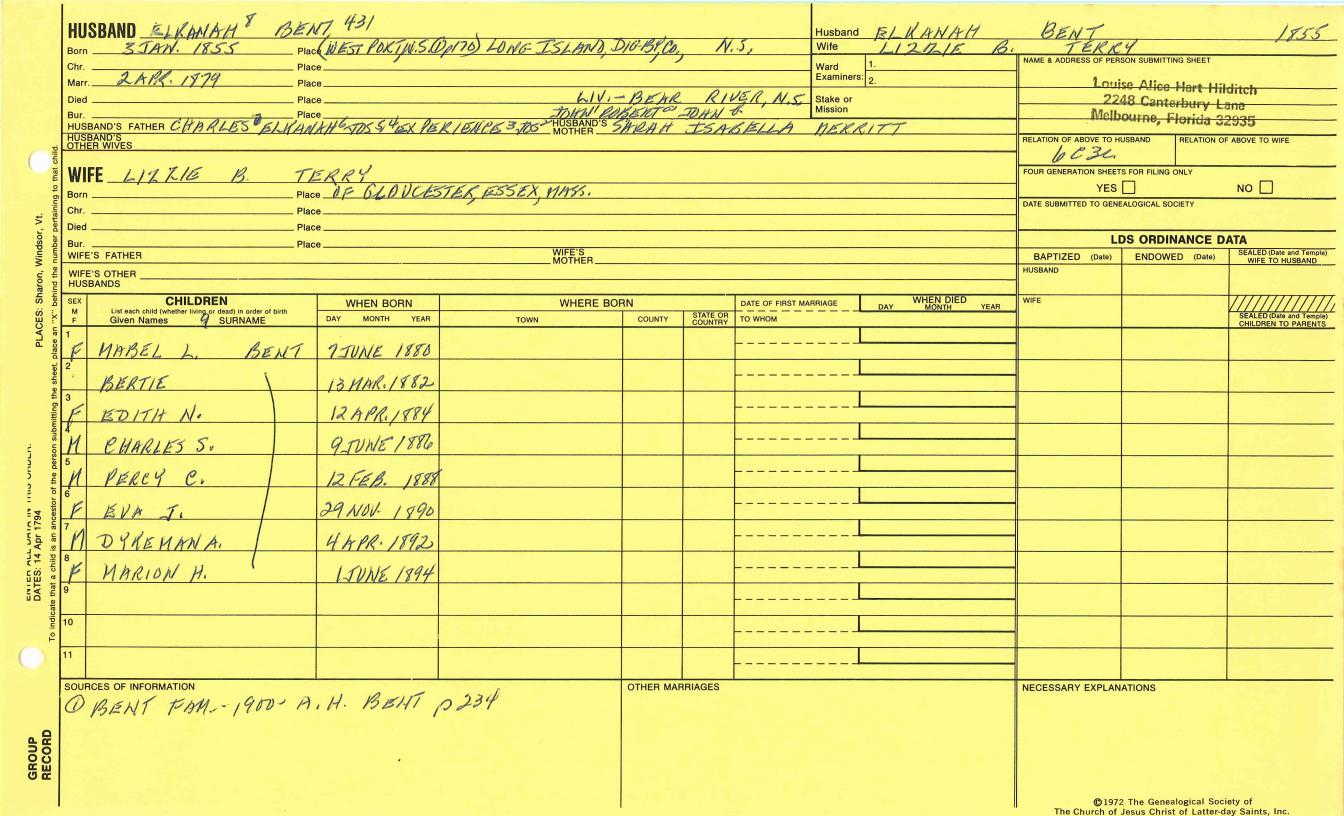 HUSBAND ELKANAH 8 BENT, 431
Born 3 JAN. 1855 Place (WEST PORT, N.S. ① p170) LONG ISLAND, DIG-BY, CO., N.S.,
Chr. Place
Marr. 2 APR. 1879 Place
Died Place LIV. - BEAR RIVER, N.S.
Bur. Place JOHN' ROBERT JOHN
HUSBAND'S FATHER CHARLES 7 ELKANAH 6 JOS 5 4 EXPERIENCE 3 JOS HUSBAND'S MOTHER SARAH ISABELLA MERRITT
HUSBAND'S OTHER WIVES
Husband ELKANAH BENT 1855
Wife LIZZIE B. TERRY
Ward Examiners: 1.
2.
Stake or Mission
NAME & ADDRESS OF PERSON SUBMITTING SHEET
Louise Alice Hart Hilditch
2248 Canterbury Lane
Melbourne, Florida 32935
RELATION OF ABOVE TO HUSBAND RELATION OF ABOVE TO WIFE
6C3C
FOUR GENERATION SHEETS FOR FILING ONLY
YES NO
DATE SUBMITTED TO GENEALOGICAL SOCIETY
WIFE LIZZIE B. TERRY
Born Place OF GLOUCESTER, ESSEX, MASS.
Chr. Place
Died Place
Bur. Place
WIFE'S FATHER WIFE'S MOTHER
WIFE'S OTHER HUSBANDS
LDS ORDINANCE DATA
BAPTIZED (Date) ENDOWED (Date) SEALED (Date and Temple) WIFE TO HUSBAND
HUSBAND
WIFE
SEALED (Date and Temple) CHILDREN TO PARENTS
SEX M F CHILDREN WHEN BORN WHERE BORN DATE OF FIRST MARRIAGE WHEN DIED
List each child (whether living or dead) in order of birth DAY MONTH YEAR
Given Names 9 SURNAME DAY MONTH YEAR TOWN COUNTY STATE OR COUNTRY TO WHOM
1 F MABEL L. BENT 7 JUNE 1880
2 BERTIE 13 MAR. 1882
3 F EDITH N. 12 APR. 1884
4 M CHARLES S. 9 JUNE 1886
5 M PERCY C. 12 FEB. 1888
6 F EVA J. 29 NOV. 1890
7 M DYREMAN A. 4 APR. 1892
8 F MARION H. 1 JUNE 1894
9
10
11
SOURCES OF INFORMATION OTHER MARRIAGES NECESSARY EXPLANATIONS
① BENT FAM. - 1900 - A. H. BENT p 234
©1972 The Genealogical Society of
The Church of Jesus Christ of Latter-day Saints, Inc.
PLACES: Sharon, Windsor, Vt.
ENTER ALL DATA IN THIS ORDER:
DATES: 14 Apr 1794
To indicate that a child is an ancestor of the person submitting the sheet, place an "X" behind the number pertaining to that child.
GROUP
RECORD